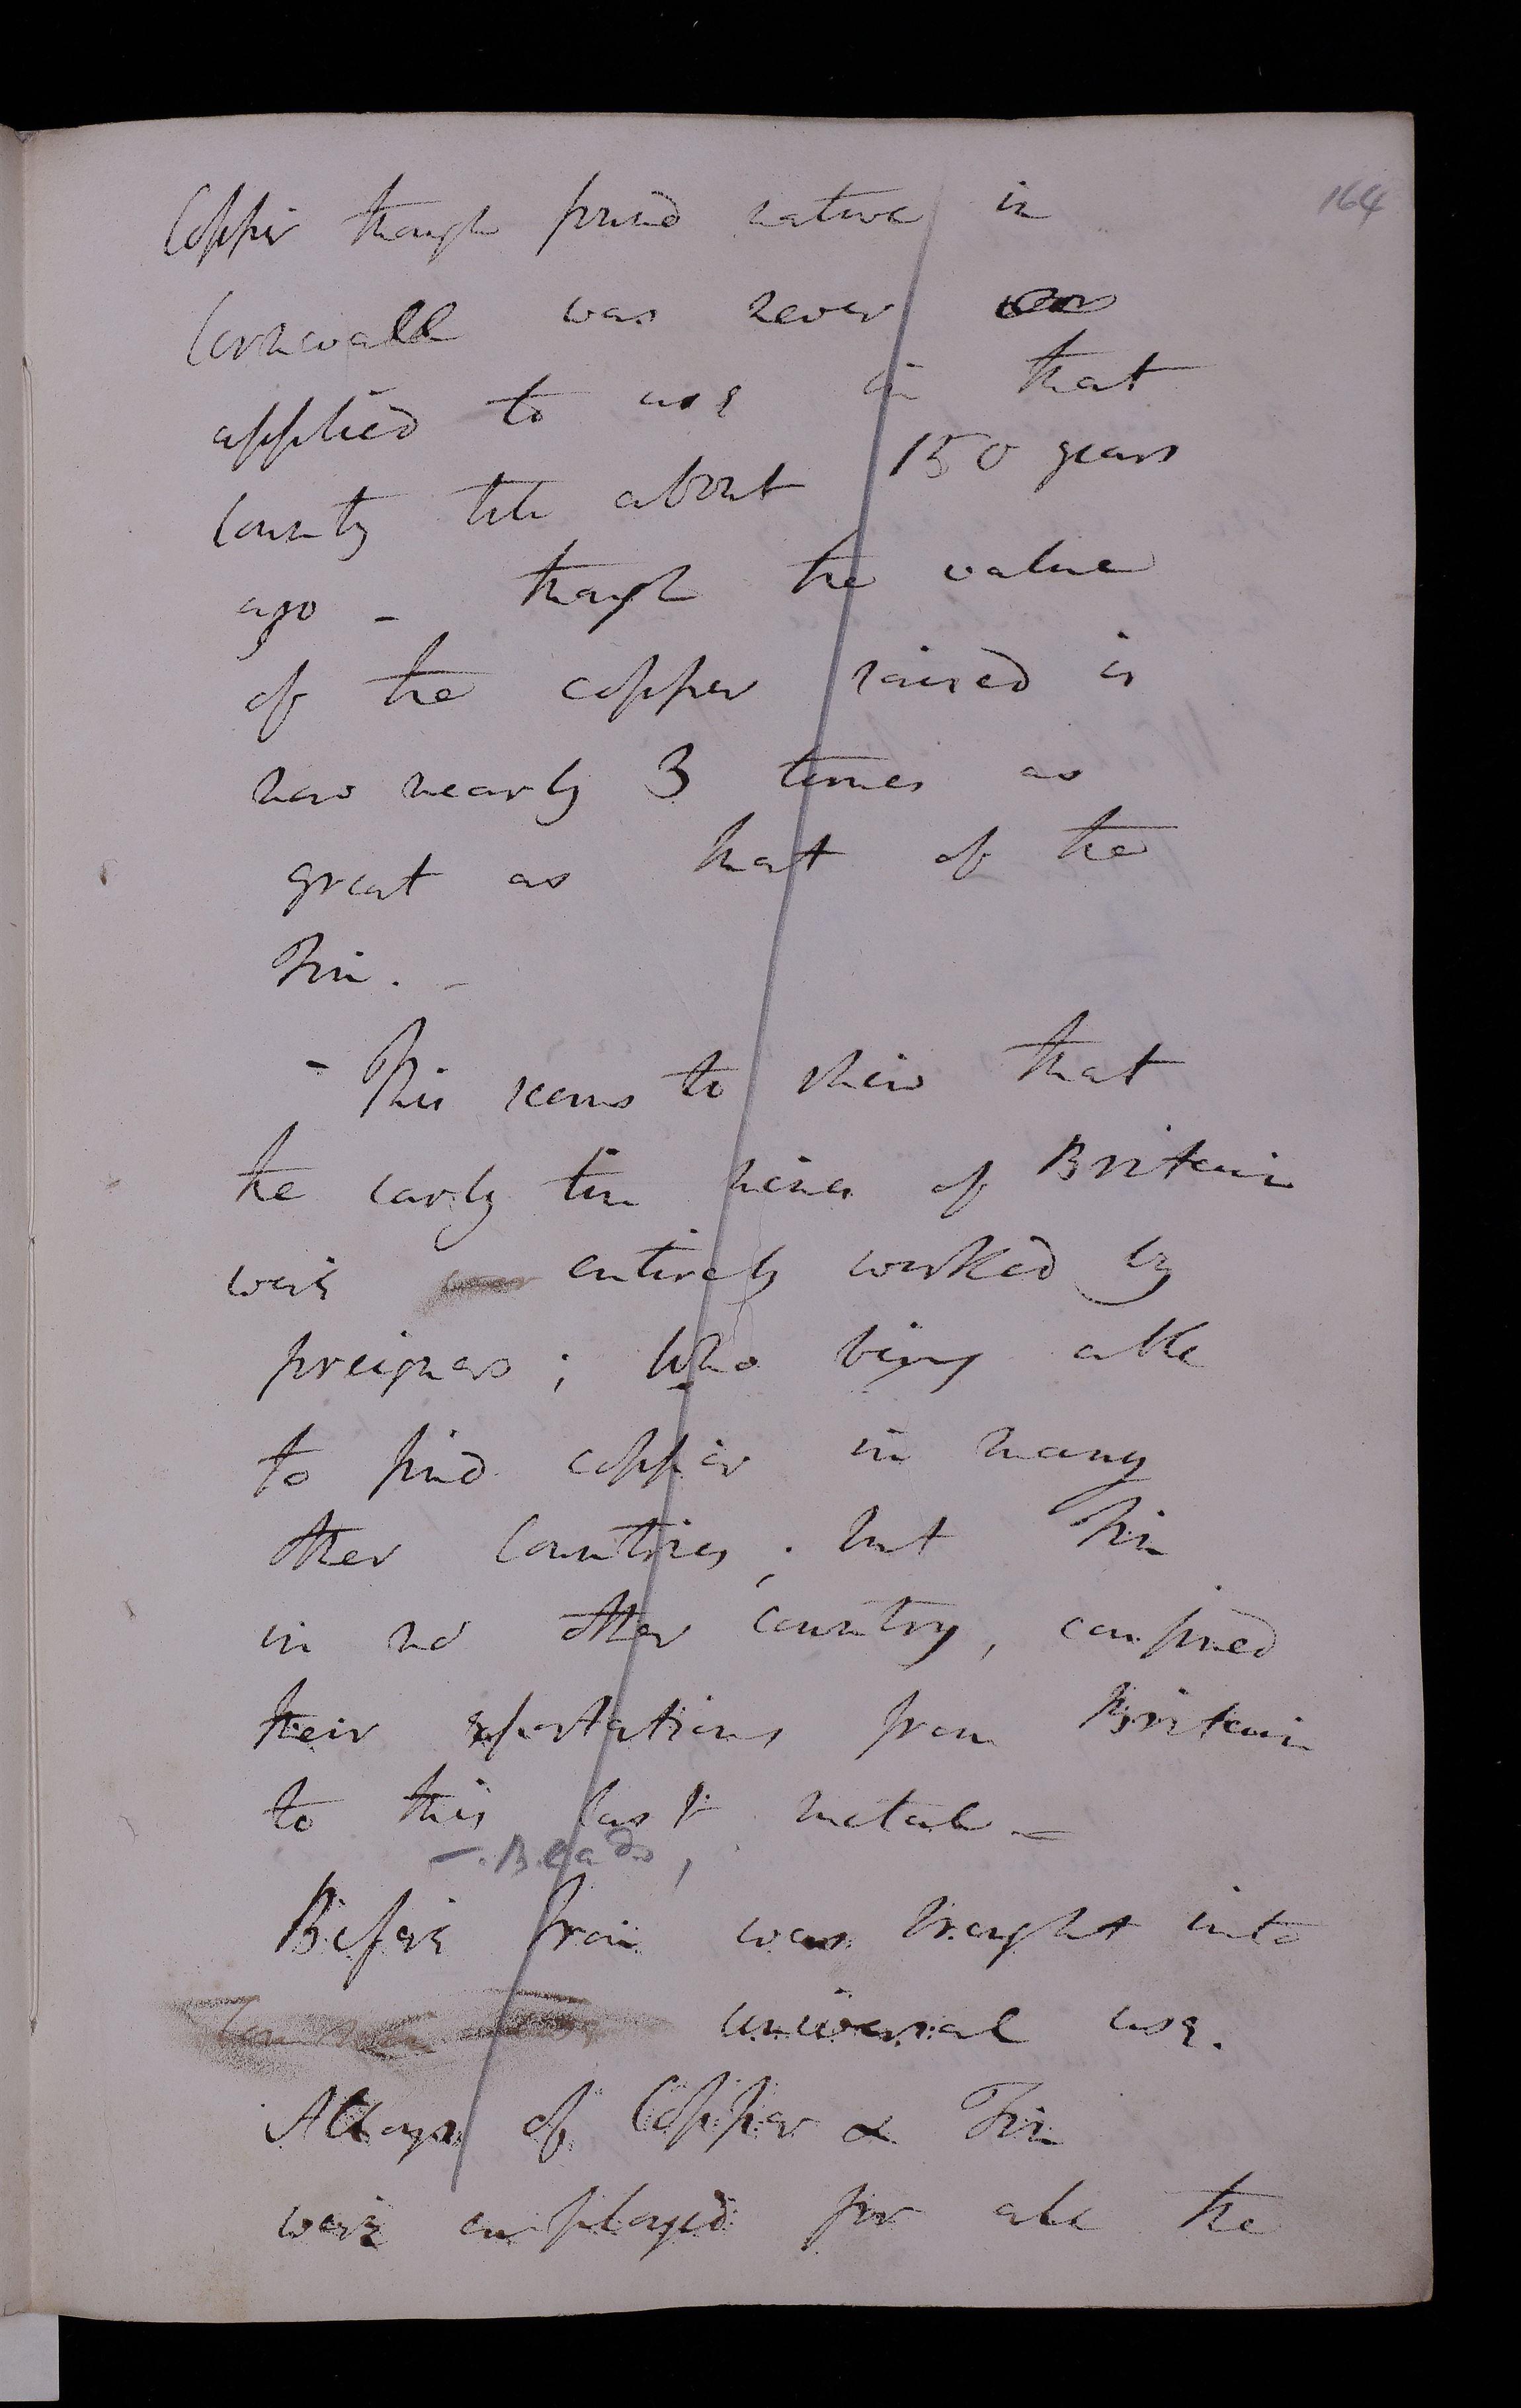 164
Copper though found native in
Cornwall was never
applied to use in that
County till about 150 years
ago - though the value
of the copper raised is
now nearly 3 times as
great as that of the
Tin. -
- This seems to shew that
the early tin mines of Britain
were entirely worked by
foreigners; who being able
to find copper in many
other Countries; but Tin
in no other country, confined
their exportations from Britain
to this last metal -
- Beads,
Before Iron was brought into
universal use.
Alloys of Copper & Tin
were employed for all the